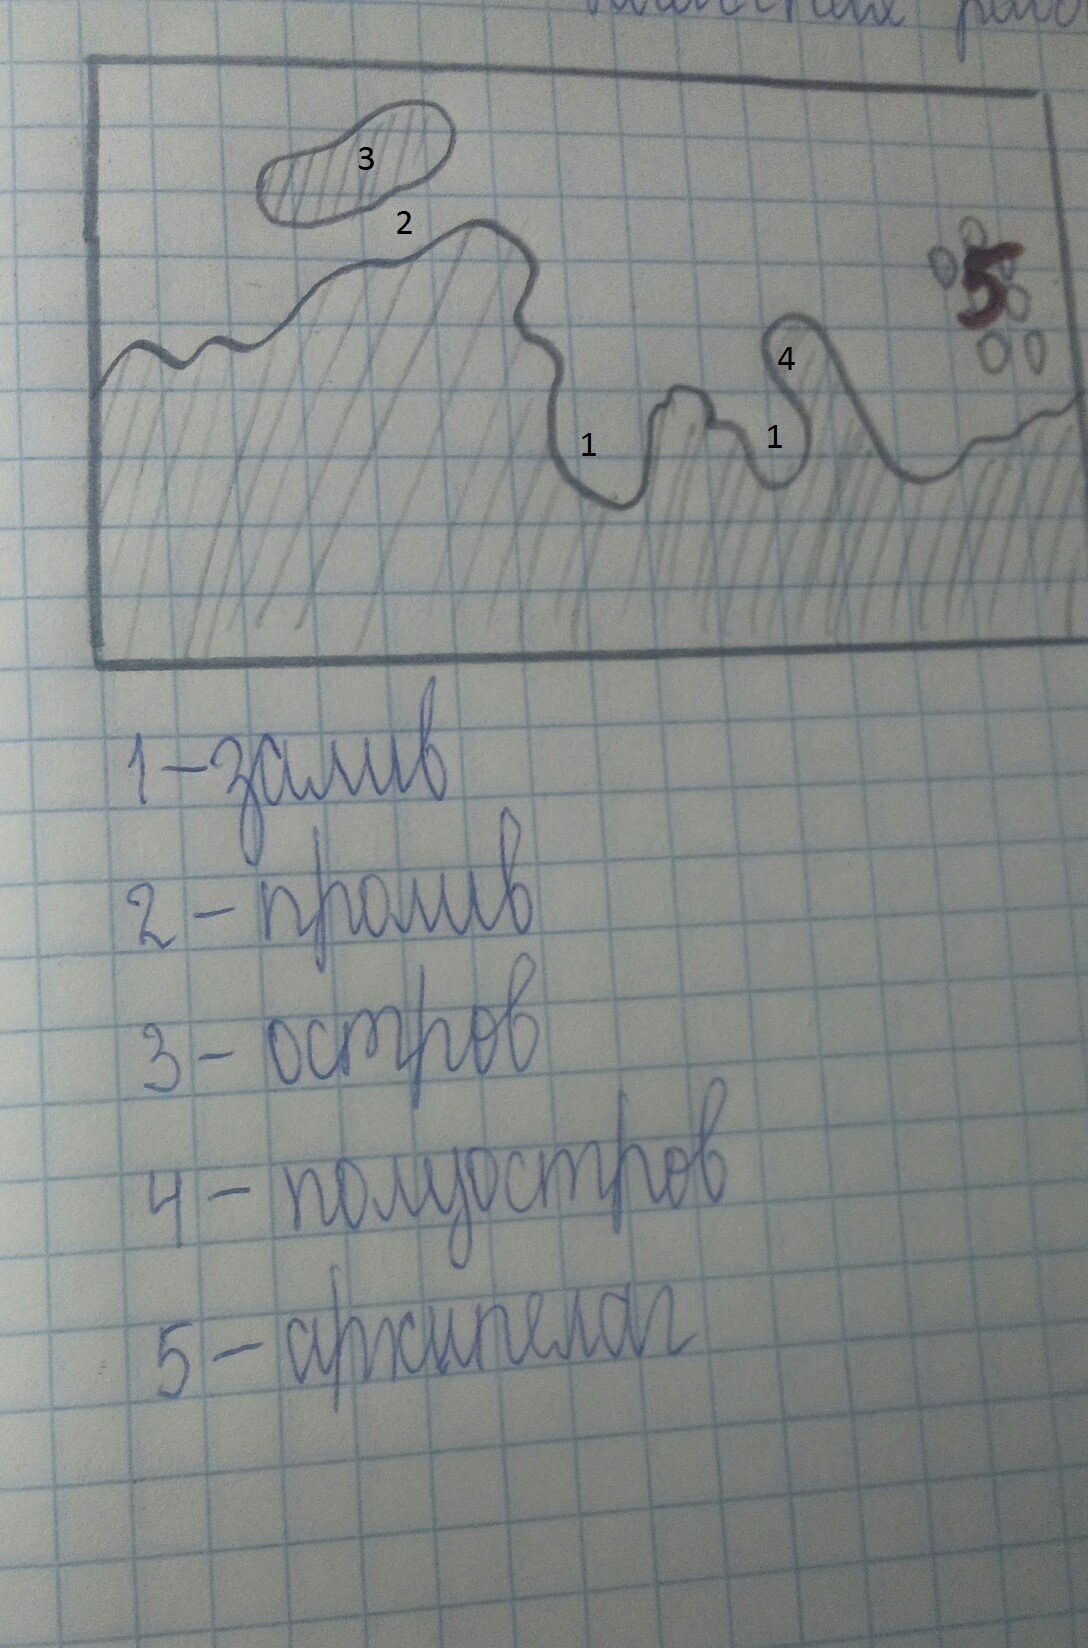 3
2
5
4
1
1
1 - залив
2 - пролив
3 - остров
4 - полуостров
5 - архипелаг